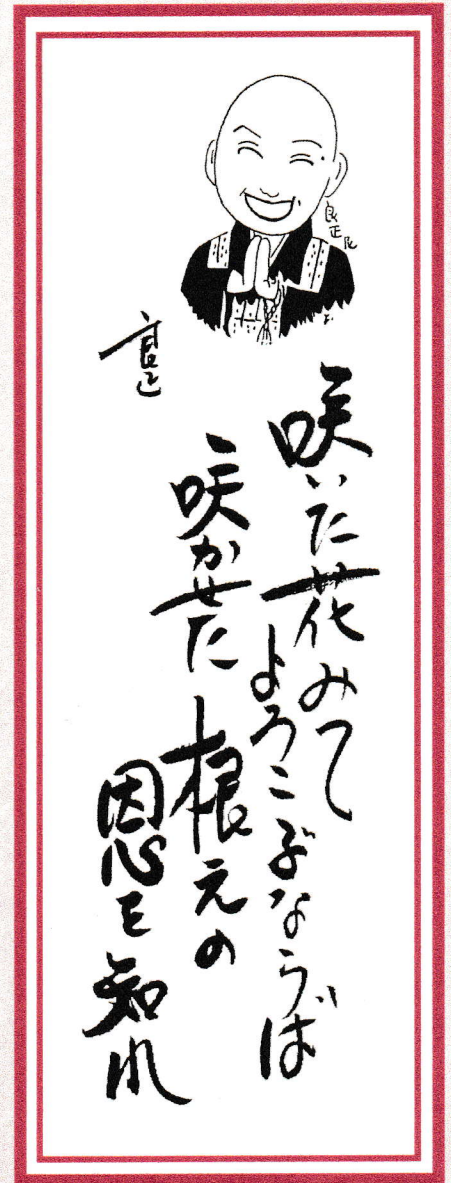 咲いた花みて
よろこぶならば
咲かせた根元の
恩を知れ
良正